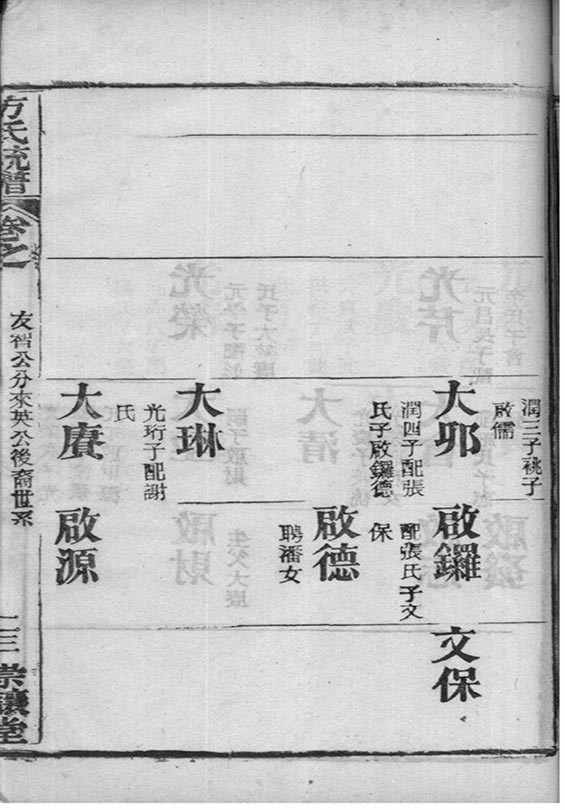 潤三子祧子
啟儒
大邜
潤四子配張
氏子啟鑼德
啟鑼
配張氏子文
保
文保
啟德
聘潘女
大琳
光珩子配謝
氏
大賡
啟源
方氏統譜
卷之
友智公分來英公後裔世系
二三
崇讓堂